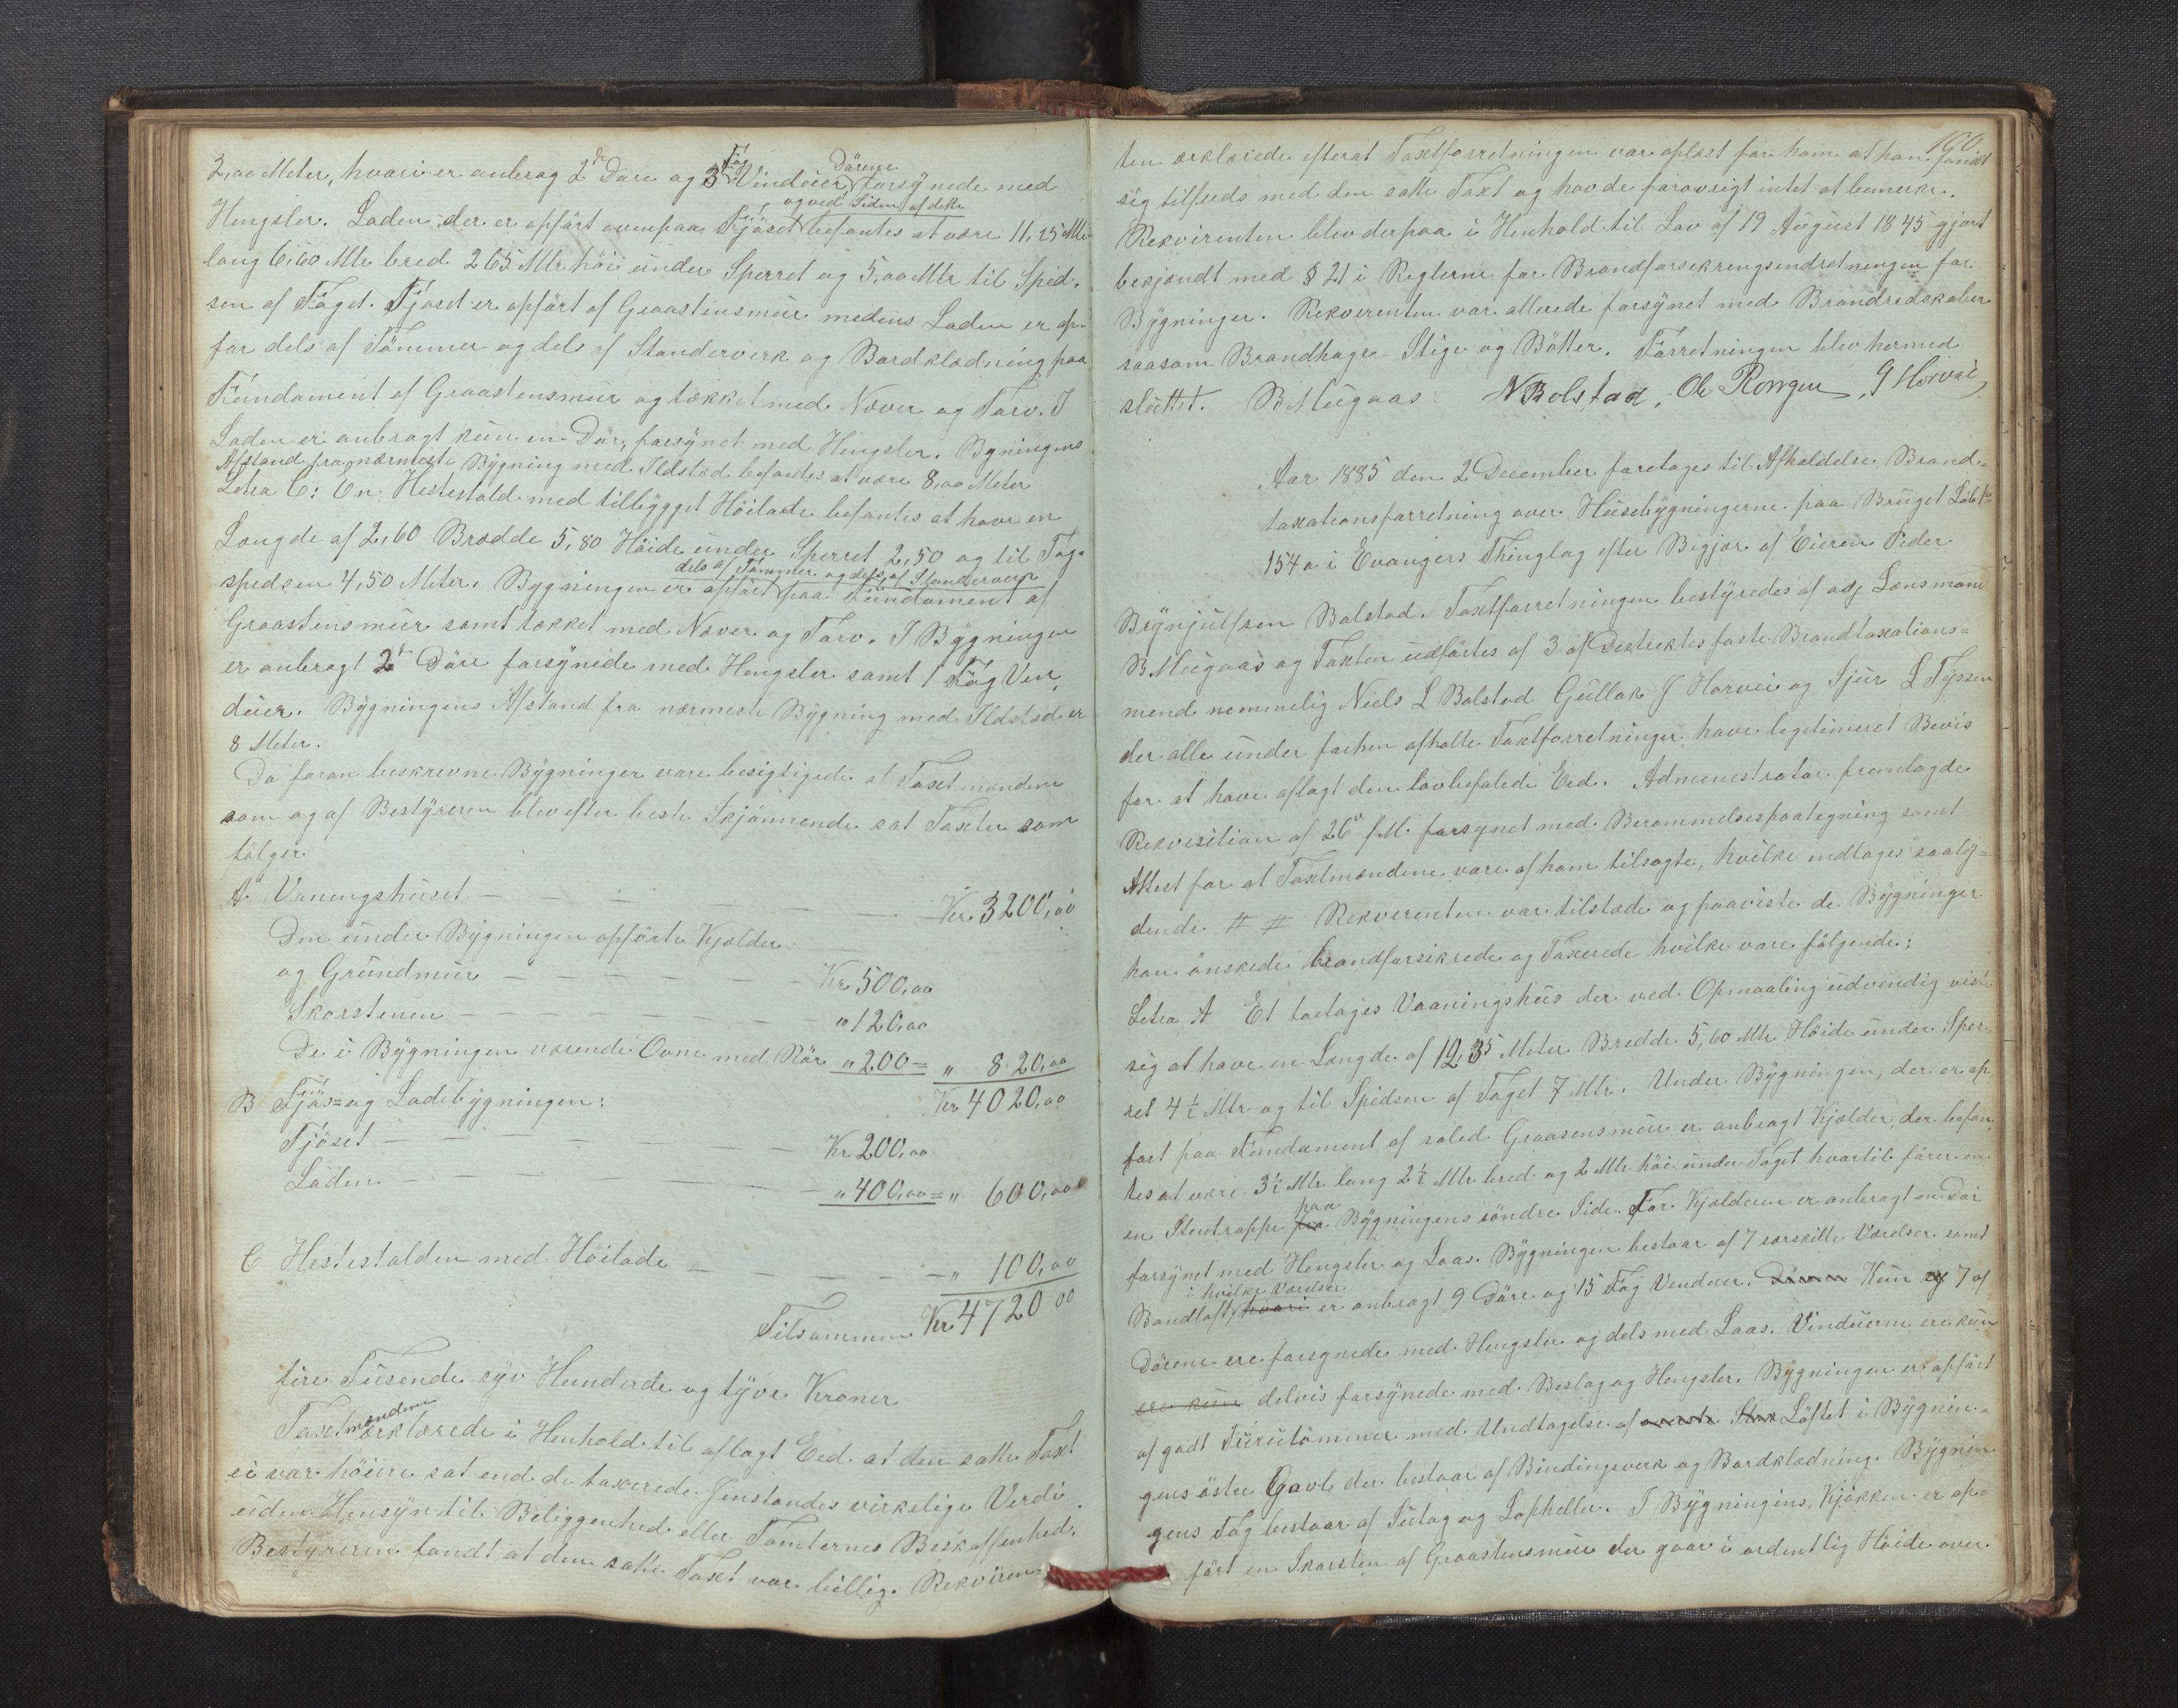 2,00 Meter, hvori er anbrag 2de Döre og 3 Fag Vinduer Dörene forsÿnede med
Hengsler. Laden der er opfört ovenpaa Fjöset og ved Siden af dette befantes at være 11,25 Mtr
lang 6,60 Mtr bred 265 Mtr höi under Sperret og 5,00 Mtr til Spid-
sen af Taget. Fjöset er opfört af Graastensmür medens Laden er op-
för dels af Tömmer og dels af Standerverk og Bordklædning paa
Fündament af Graastensmür og tækket med Næver og Tørv. I
Laden er anbragt kün en Dör, forsÿnet med Hengsler. Bygningens
Afstand fra nærmeste Bÿgning med Ildsted befandtes at være 8,00 Meter
Litra C: En Hestestald med tilbÿgget Höilade befantes at have en
Længde af 2,60 Bredde 5,80 Höide under Sperret 2,50 og til Tag-
spidsen 4,50 Meter. Bygningen er opfört dels af Tömmer og dels af Standerverk paa Fündament af
Graastensmür samt tækket med Næver og Törv. I Bÿgningen
er anbragt 2de Döre forsÿnede med Hengsler samt 1 Fag Ven
düer. Bÿgningens Afstand fra nærmeste Bÿgning med Ildsted er
8 Meter.
Da foran beskrevne Bÿgninger vare besigtigede af Taxtmændene
som og af Bestÿreren blev efter beste Skjönnende sat Taxter som
fölger
A. Vaningshüset — Kr. 3200,00
Den ünder Bÿgningen opförte Kjælder
og Gründmür — Kr 500,00
Skorstenen — " 120,00
De i Bÿgningen værende Ovne med Rör " 200 = " 820,00
Kr 4020,00
B Fjös= og Ladebÿgningen:
Fjöset — Kr 200,00
Laden — " 400,00 = " 600,00
C Hestestalden med Höilade — " 100,00
Tilsammen Kr 4720 00
fire Tüsende sÿv Hunderde og tÿve Kroner
Taxtmændene erklærede i Henhold til aflagt Eed at den satte Taxt
ei var höiere sat end de taxerede Jenstandes virkelige Verdi
uden Hensÿn til Beliggenhed eller Tomternes Beskaffenhed.
Bestÿreren fandt at den satte Taxt var billig. Rekviren-
190.
ten erklærede efterat Taxtforretningen var oplæst for ham at han fandt
sig tilfreds med den satte Taxt og havde forövrigt intet at bemerke.
Rekvirenten blev derpaa i Henhold til Lov af 19 August 1845 gjort
bekjendt med § 21 i Reglerne for Brandforsekringsindretningen for
Bÿgninger. Rekverenten var allerede forsÿnet med Brandredskaber
saasom Brandhage Stige og Bötter. Forretningen blev hermed
slüttet. B Mügaas N Bolstad, Ole Rongen, G Horvei
Aar 1885 den 2 December foretoges til Afholdelse Brand-
taxationsforretning over Hüsebÿgningerne paa Brüget Löb No
154 a i Evangers Thinglag efter Begjær af Eieren Peder
Brÿnjulfsen Bolstad. Taxtforretningen bestÿredes af adj Lensmand
B Mügaas og Taxten üdförtes af 3 af Destriktes faste Brandtaxations=
mend nemmelig Niels L Bolstad Güllak J Horvei og Sjür L Tÿssen
der alle ünder forhen afholte Taxtforretninger have legitimeret Bevis
for at have aflagt den lovbefalede Eed. Admenestrator fremlagde
Rekvisition af 26de f.M. forsynet med Berammelsespaategning samt
Attest for at Taxtmændene vare af ham tilsagte, hvilke indtages saaly=
dende # # Rekverenten var tilstede og paaviste de Bÿgninger
han önskede brandforsikrede og Taxerede hvilke vare fölgende:
Letra A Et toetages Vaaningshüs der ved Opmaaling üdvendig viste
sig at have en Længde af 12,35 Meter Bredde 5,60 Mtr Höide ünder Sper-
ret 4 ½ Mtr og til Spidsen af Taget 7 Mtr. Under Bÿgningen, der er op
fört paa Fündament af soled Graasensmür er anbragt Kjælder, der befan
tes at være 3½ Mtr lang 2½ Mtr bred og 2 Mtr höi ünder Taget hvortil förer en
en Stentrappe fra paa Bÿgningens söndre Side. For Kjælderen er anbragt en Dör
forsÿnet med Hengsler og Laas. Bÿgningen bestaar af 7 særskilte Værelser samt
Bandloft, hvori i hvilke Værelser er anbragt 9 Döre og 15 Fag Vendüer. Kün 7 af
Dörene ere forsynede med Hengsler og dels med Laas. Vindüerne ere kün
ere kün delvis forsÿnede med Beslag og Hengsler. Bÿgningen er opfört
af godt Fürütömmer med Undtagelse af Löftet i Bÿgnin-
gens östre Gavl der bestaar af Bindingsverk og Bordklædning. Bÿgnin
gens Tag bestaar af Sütag og Lapheller. I Bÿgningens Kjökken er op=
fört en Skorsten af Graastensmür der gaar i ordentlig Höide over